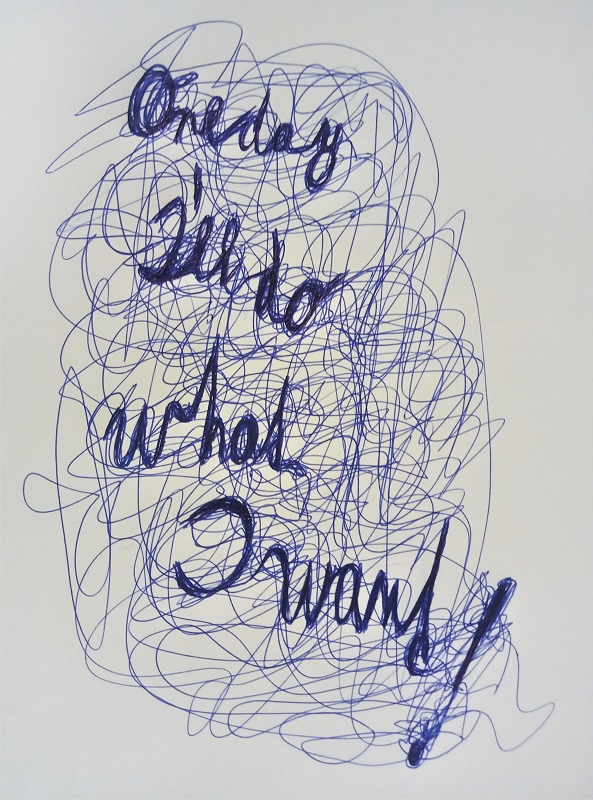 One day
I'll do
what
I want!